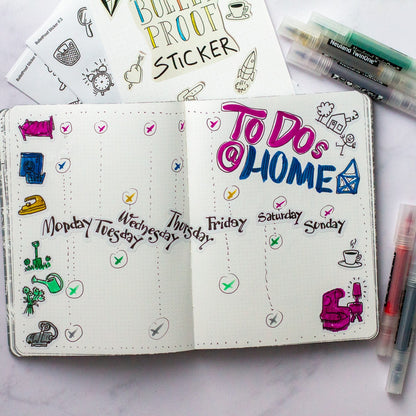 BULLET
PROOF
STICKER
To Dos
@HOME
Monday
Tuesday
Wednesday
Thursday
Friday
Saturday
Sunday